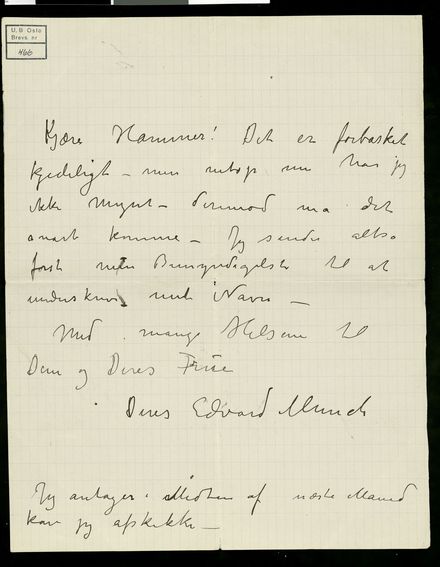 U. B. Oslo
Brevs. nr.
466
Kjære Hammer! Det er forbasket
kjedeligt – men netop nu har jeg
ikke Mynt – derimod må det
snart komme – Jeg sender altså
først min til at
underskrive mit Navn –
Med mange Hilsener til
Dem og Deres Frue
Deres Edvard Munch
Jeg antager i Midten af næste Maaned
kan jeg afskikke –